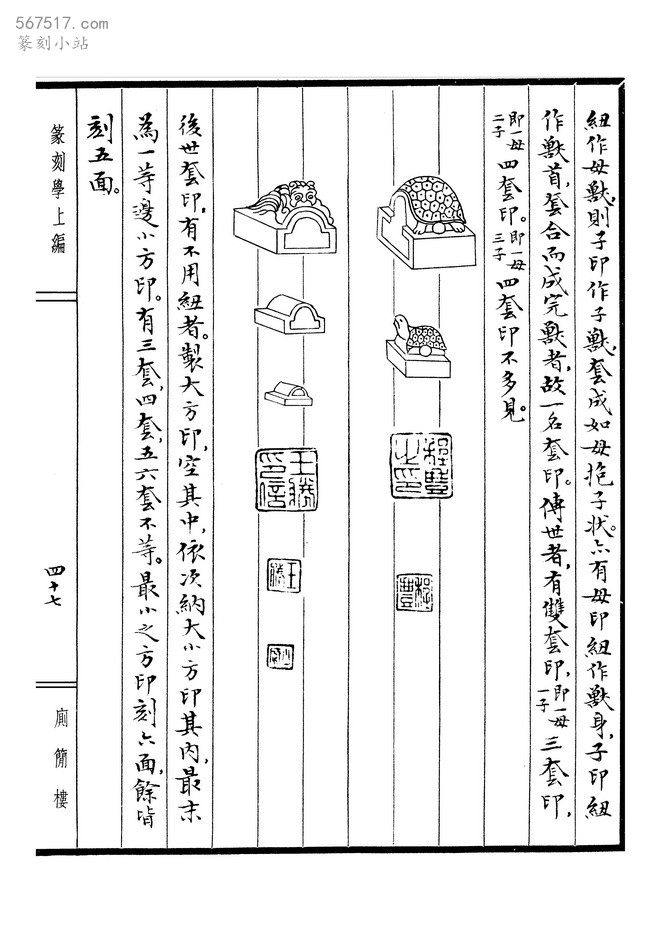 567517.com
篆刻小站
紐作母獸,則子印作子獸,套成如母抱子狀。亦有母印紐作獸身,子印紐
作獸首,套合而成完獸者,故一名套印。傳世者,有雙套印,即一母一子三套印,
即一母二子四套印。即一母三子四套印不多見。
程豐之印
程豐
王勝印信
王勝
後世套印,有不用紐者。製大方印,空其中,依次納大小方印其內,最末
為一等邊小方印。有三套,四套,五六套不等。最小之方印刻六面,餘皆
刻五面。
篆刻學上編
四十七
廁簡樓